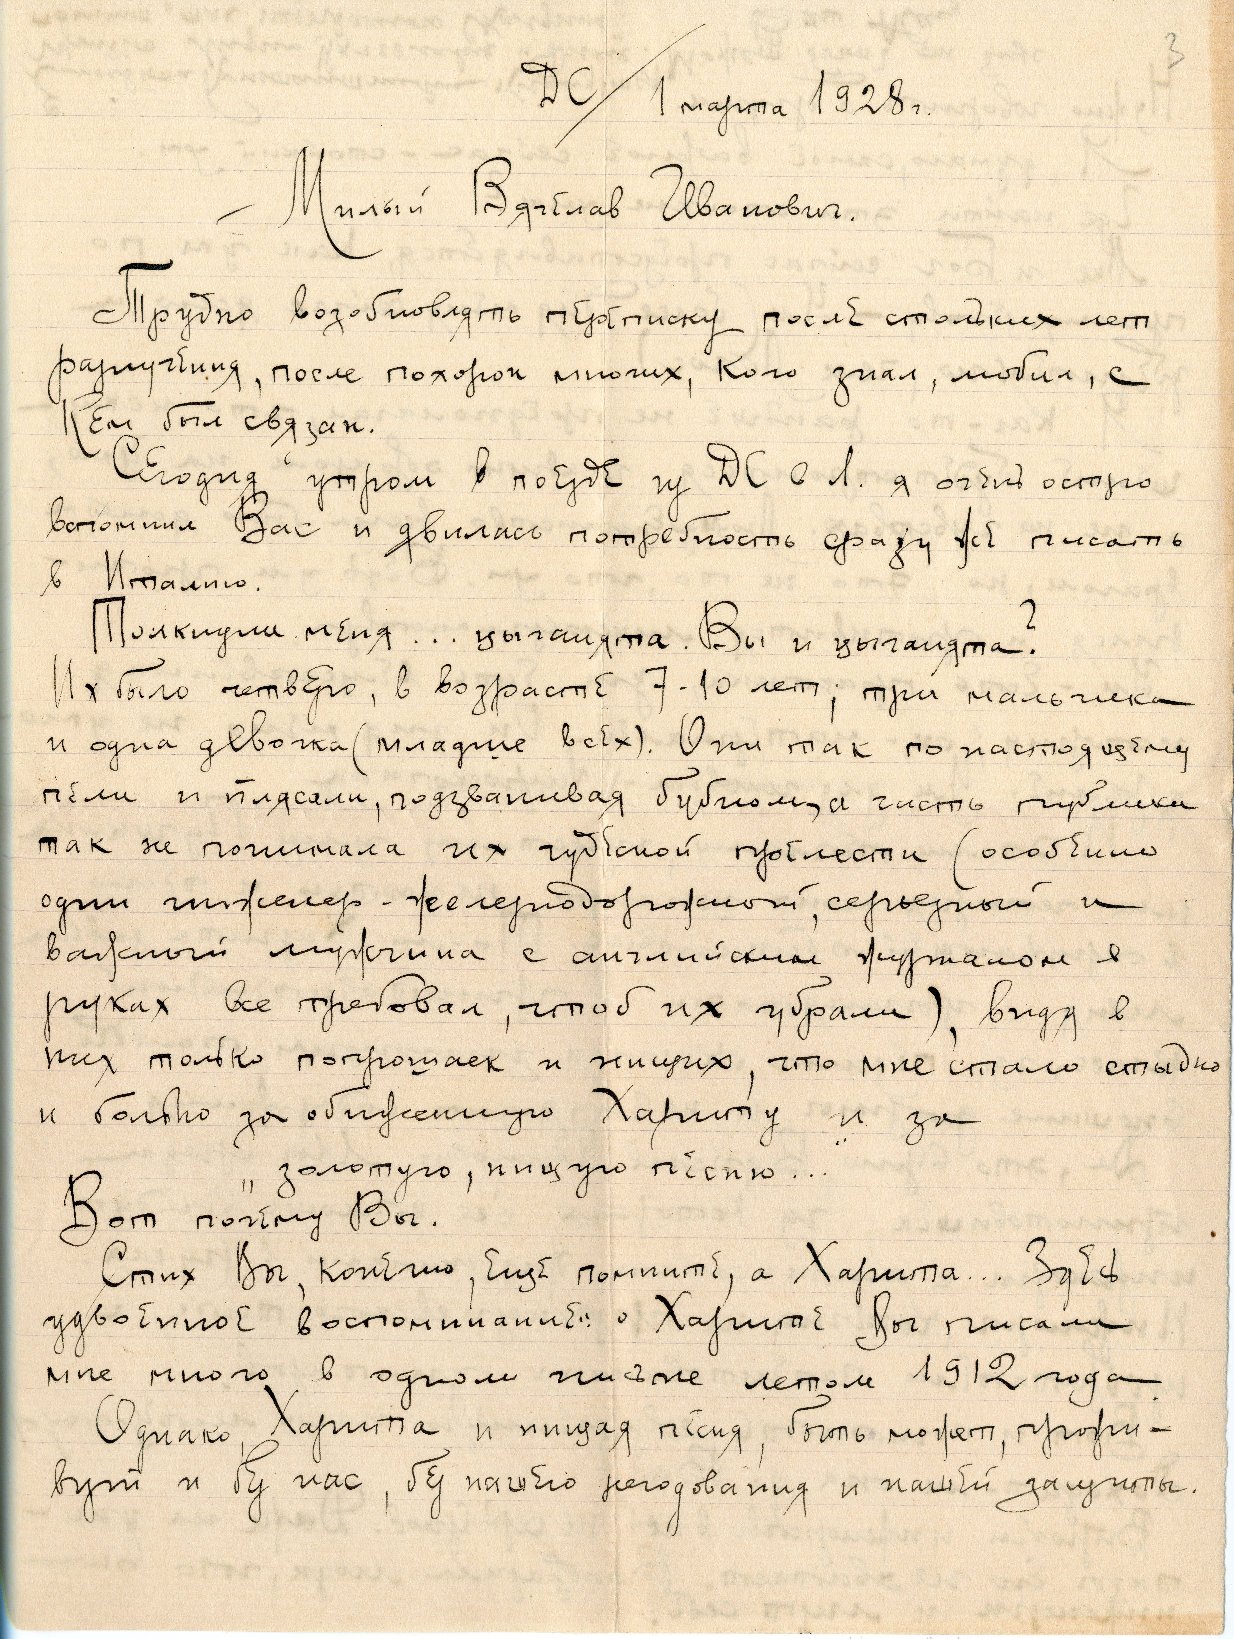 3
ДС/ 1 марта 1928 г.
Милый Вячеслав Иванович.
Трудно возобновлять переписку после стольких лет
разлучения, после похорон многих, кого знал, любил, с
кем был связан.
Сегодня утром в поезде из ДС в Л. я очень остро
вспомнил Вас и явилась потребность сразу же писать
в Италию.
Толкнули меня ... цыганята. Вы и цыганята?
Их было четверо, в возрасте 7-10 лет; три мальчика
и одна девочка (младше всех). Они так по настоящему
пели и плясали, подзванивая бубном, а часть публики
так не понимала их чудесной прелести (особенно
один инженер-железнодорожный, серьезный и
важный мужчина с английским журналом в
руках все требовал, чтоб их убрали), видя в
них только попрошаек и нищих, что мне стало стыдно
и больно за обиженную Хариту и за
„золотую, нищую песню..."
Вот почему Вы.
Стих Вы, конечно, еще помните, а Харита... Здесь
удвоенное воспоминание: о Харите Вы писали
мне много в одном письме летом 1912 года
Однако, Харита и нищая песня, быть может, прожи-
вут и без нас, без нашего негодования и нашей защиты.